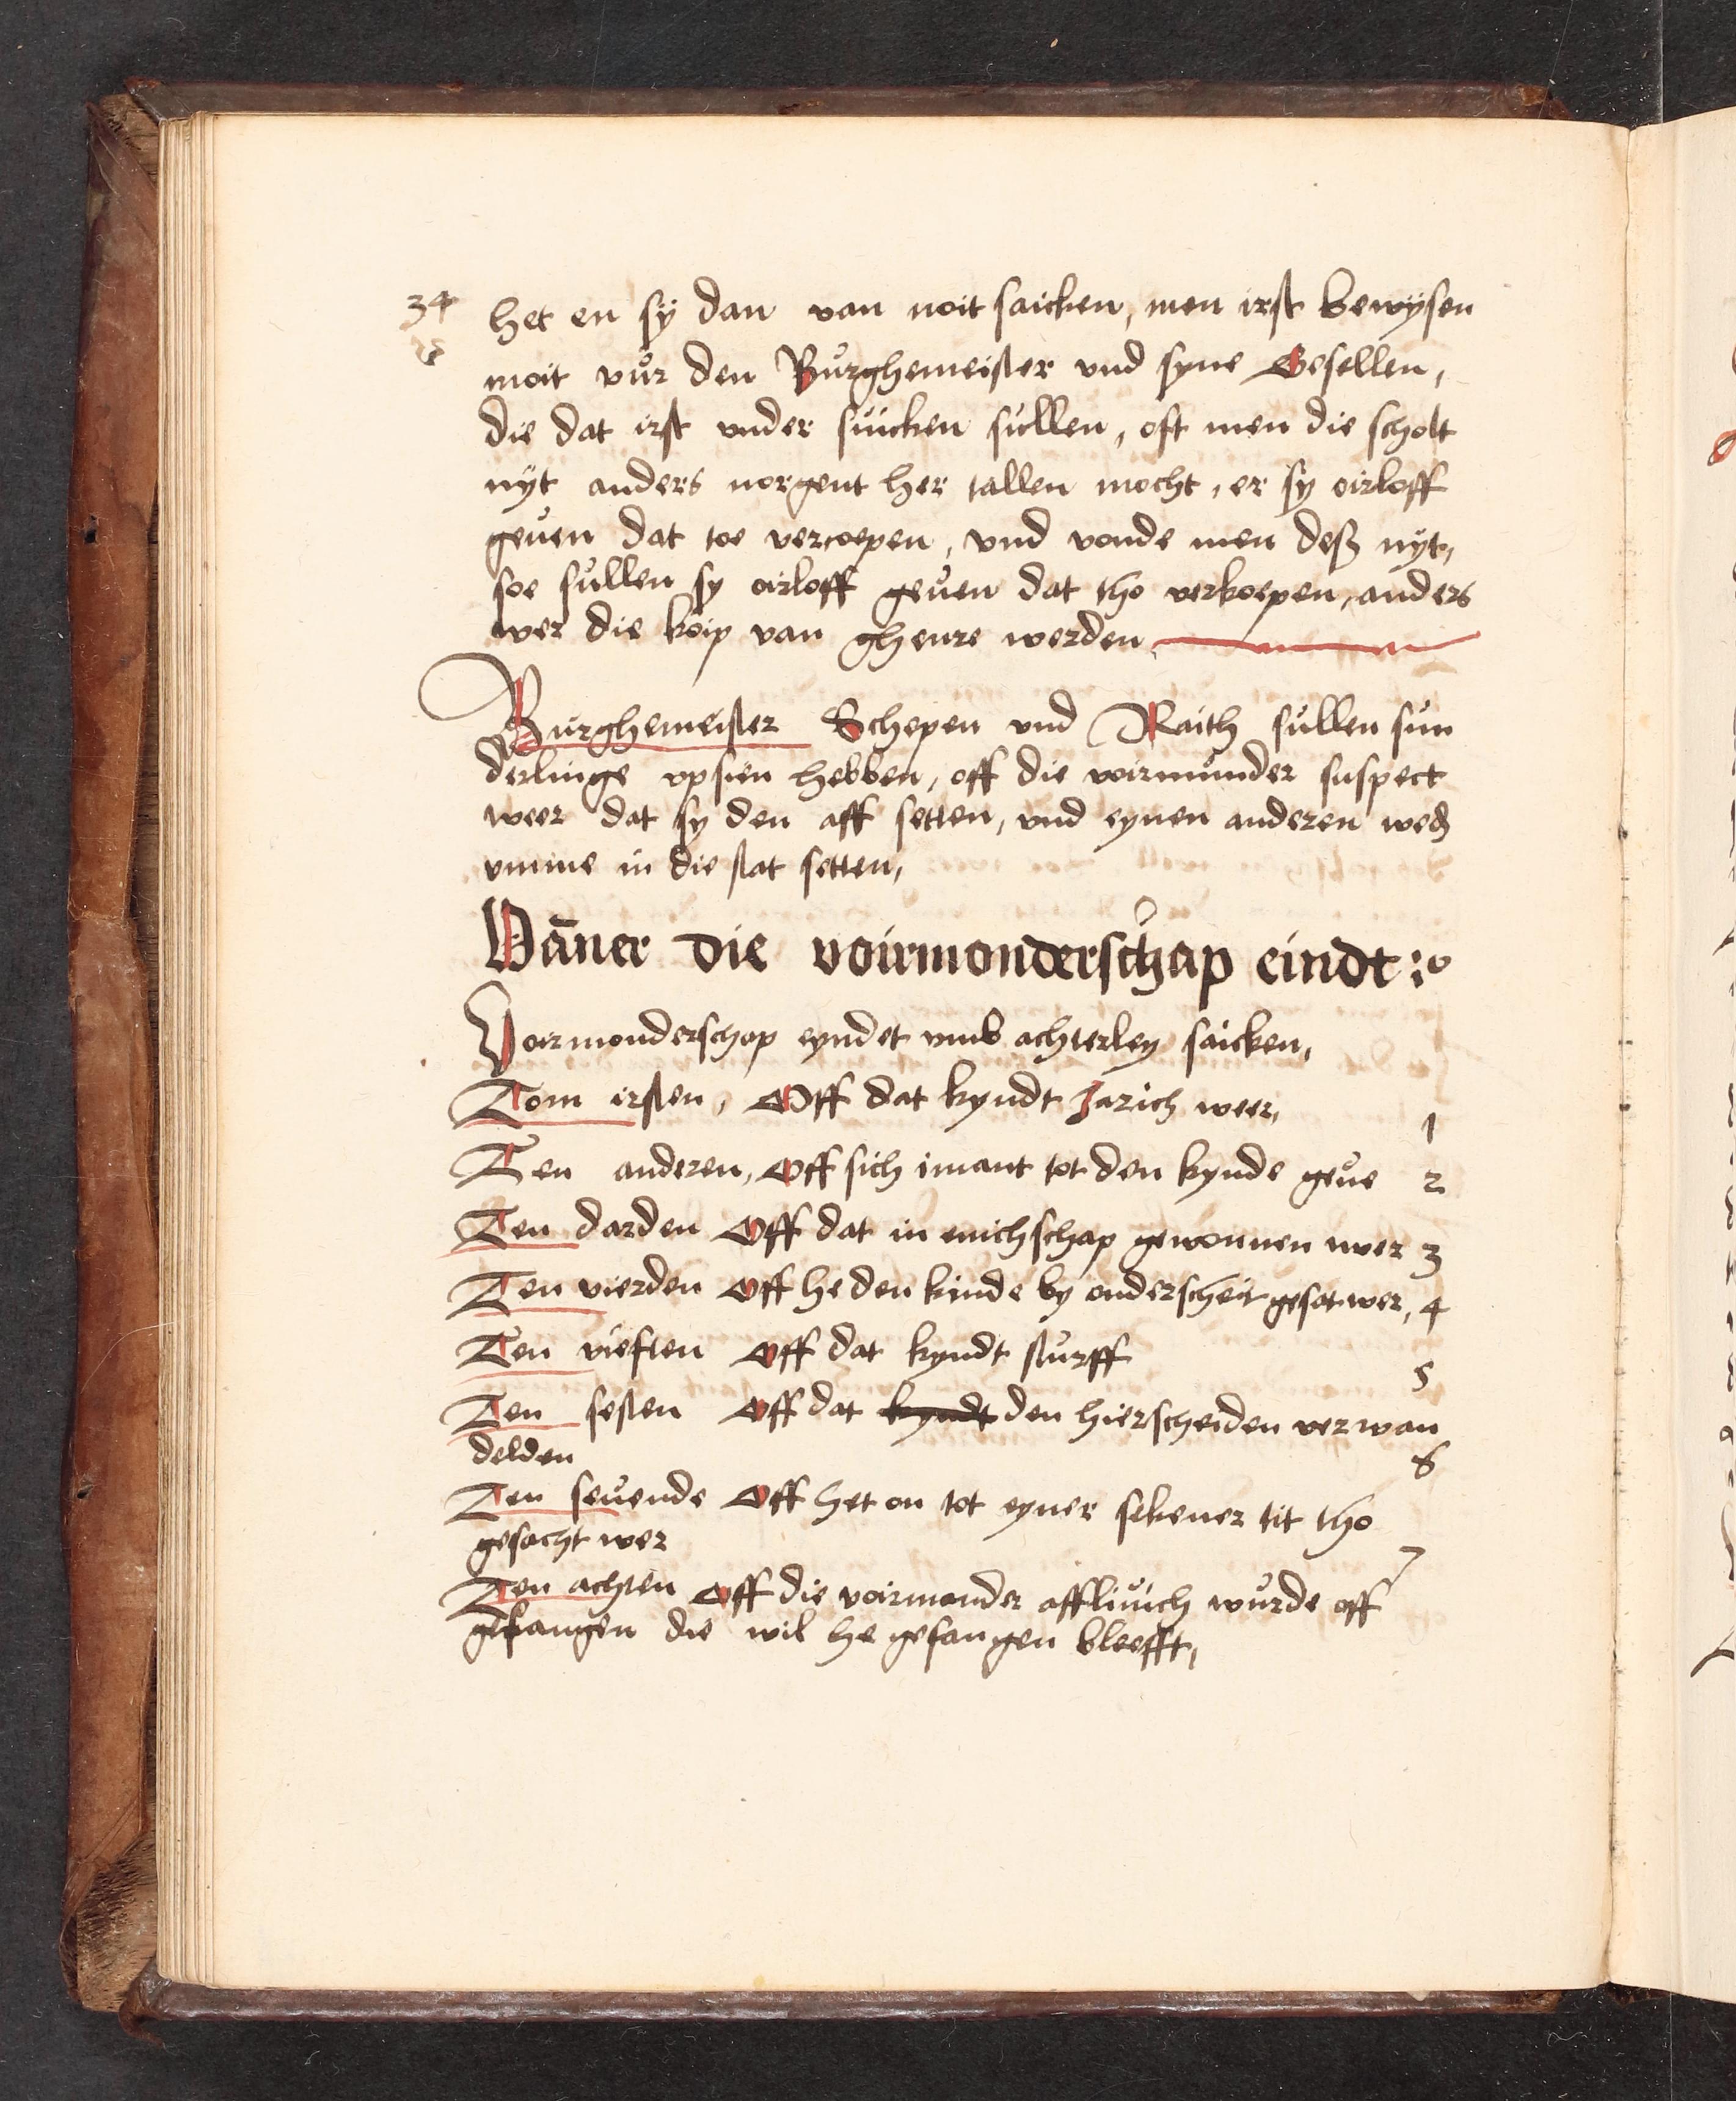 34 het en sÿ dan van noit saicken, men irst bewÿsen
moit vůr den Bůrghemeister vnd syne Gesellen,
die dat irst vnder sůicken sůllen, oft men die scholt
nÿt anders norgent her tallen mocht, er sy oirloff
geůen dat toe vercoepen, vnd vonde men deß nÿt,
soe sůllen sy oirloff geůen dat tho verkoepen, anders
wer die koip van ghenre werden
Burghemeister Schepen vnd Raith sůllen sůn
derlinge vpsien hebben, off die voirmůnder suspect
weer dat sy den aff setten, vnd eynen anderen wed
vmme in die stat setten,
Wāner die voirmonderschap eindt :
Voirmonderschap eyndet vmb achterley saicken,
Tom irsten, Off dat kyndt Jarich weer, 1
Ten anderen, Off sich imant tot den kynde geůe 2
Ten darden Off dat in enichschap gewonnen wer 3
Ten vierden Off he den kinde by onderscheit gesat wer, 4
Ten vieften Off dat kyndt sturff 5
Ten sesten Off dat kyndt den hierscheiden verwan
delden 6
Ten seůende Off het on tot eyner sekener tit tho
gesacht wer 7
Ten achten Off die voirmonder afflůich wůrde off
gefangen die wil he gefangen bleefft,